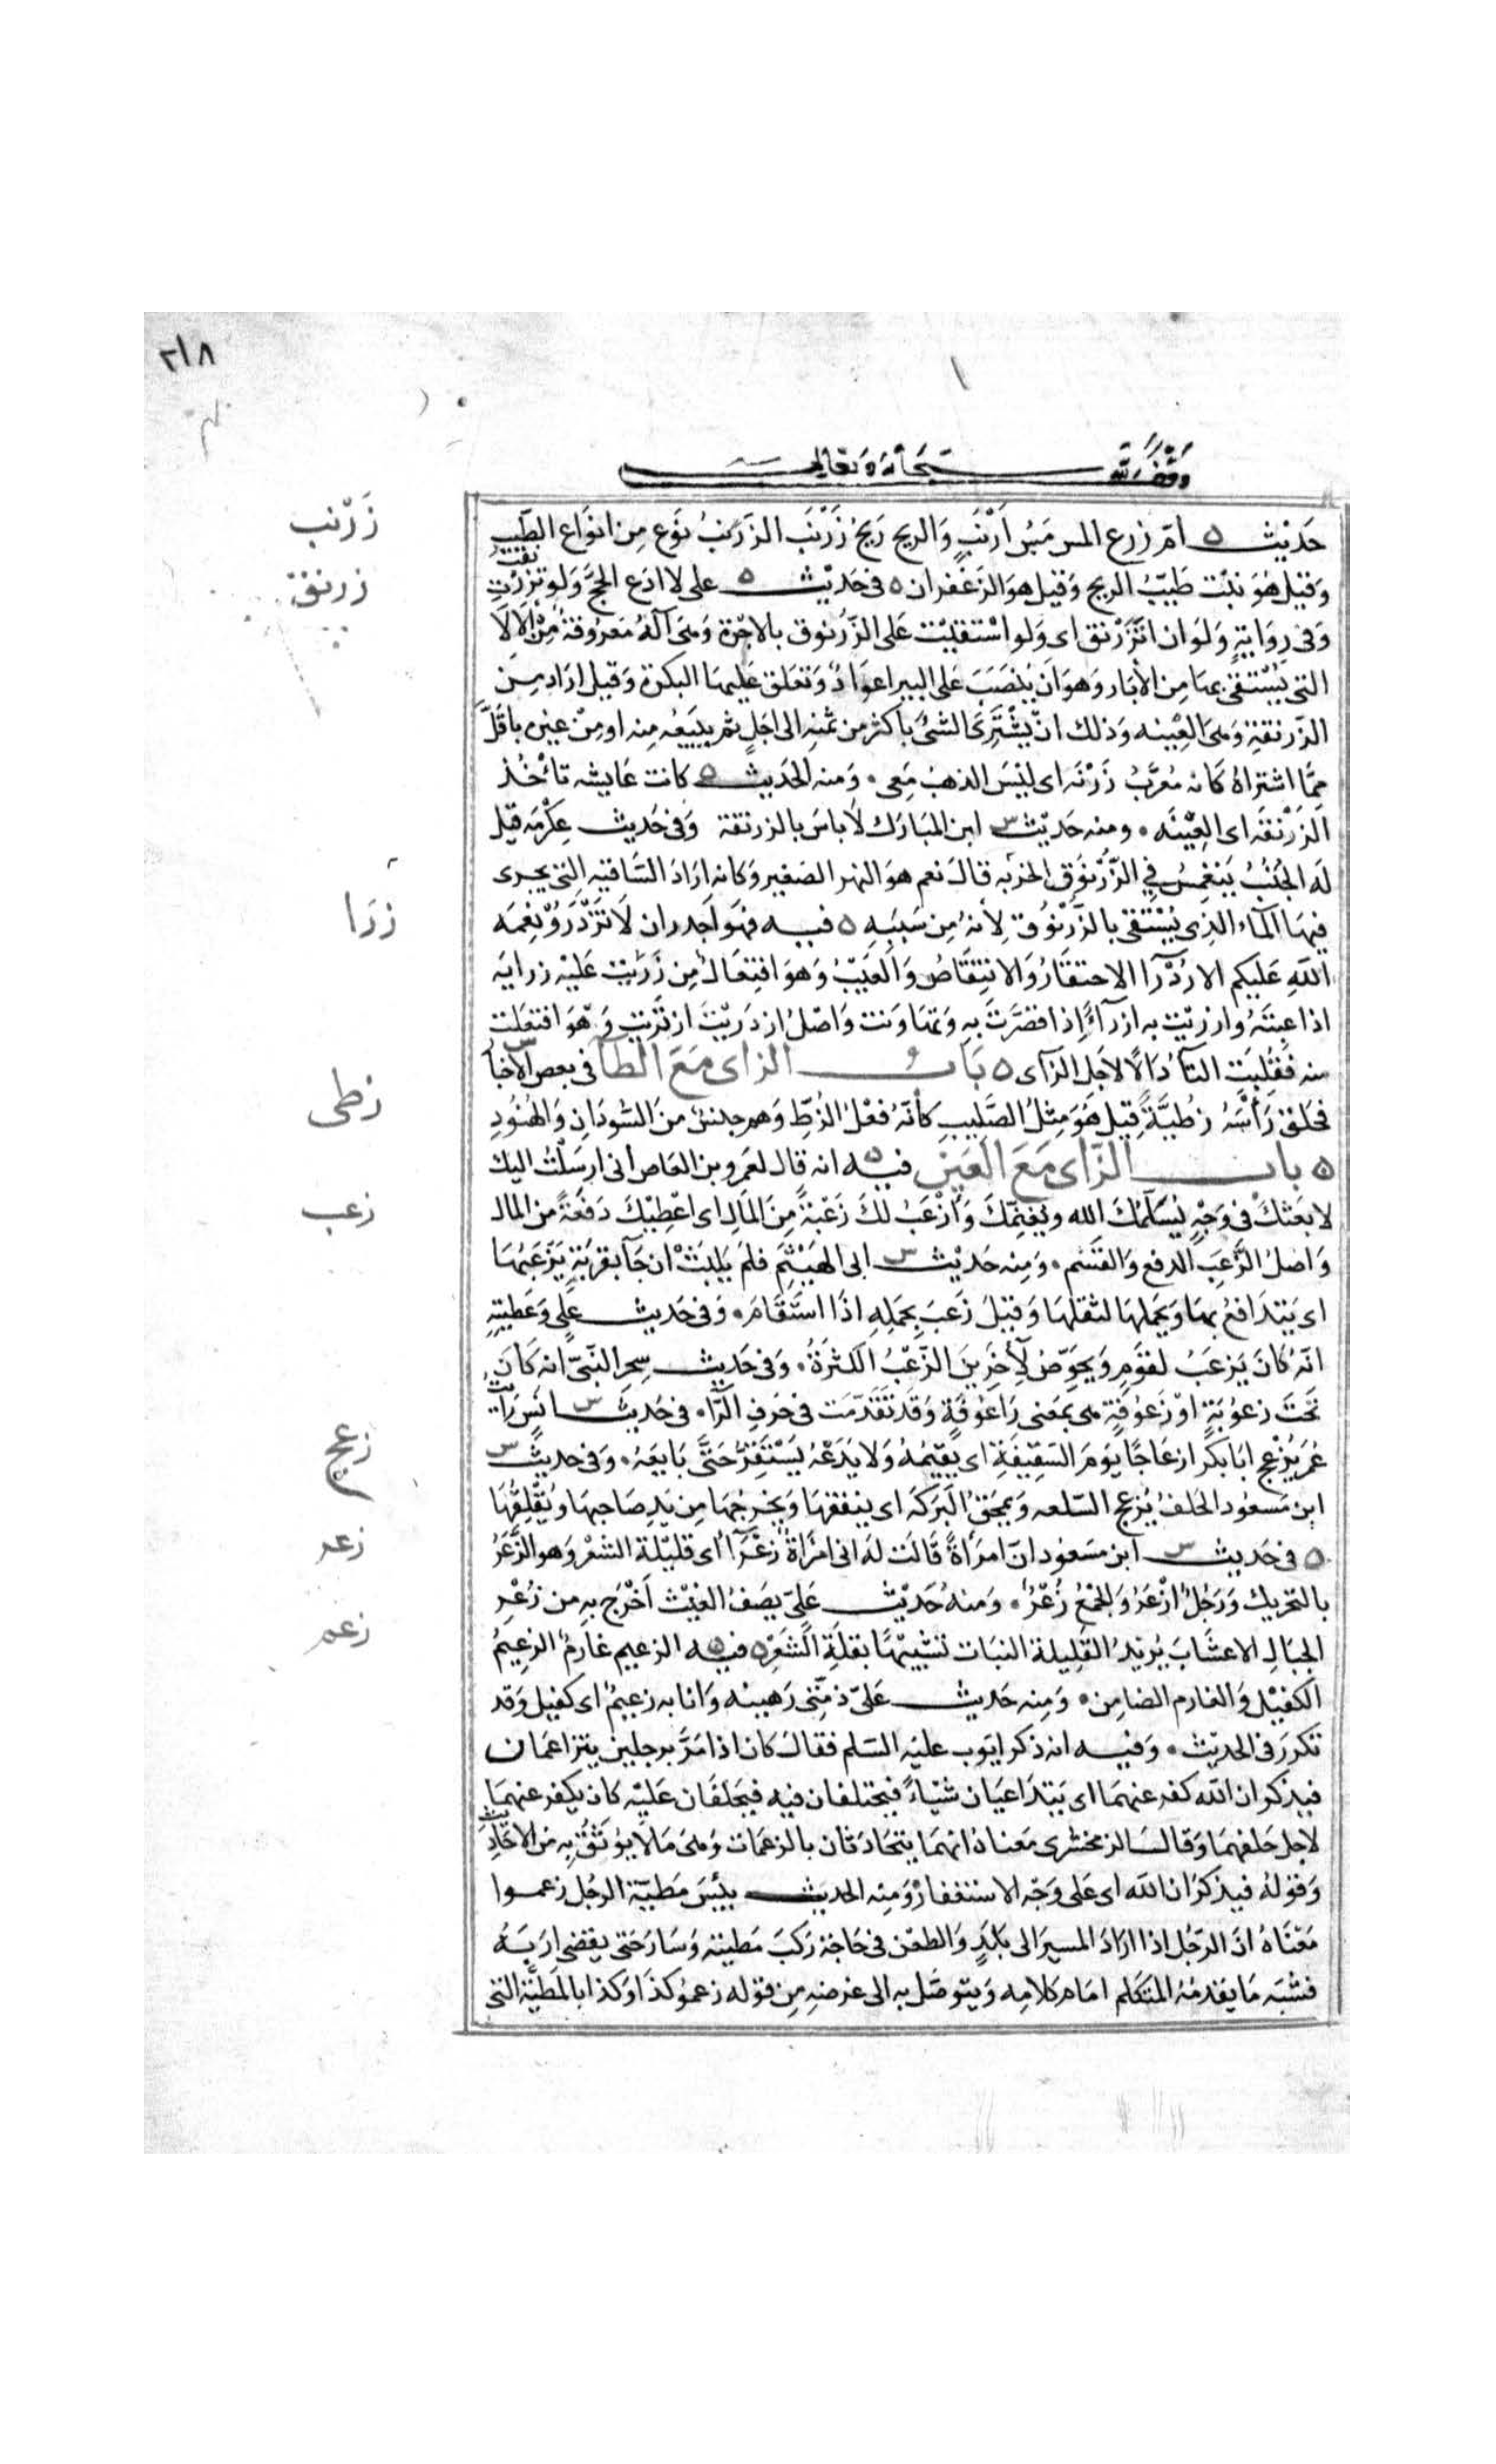 ٢١٨
وقف لله سبحانه وتعالى
زَرْنب
حَديث ه اُمّ زرع المس مَسُّ اَرْنَبٍ وَالريح رَيحُ زَرْنَب الزَرْنبُ نوَع مِن انوَاع الطّيب
زرنق
وَقيل هُوَ نبْت طَيّبُ الريح وَقيل هوَ الزعْفران ه فى حَديث ه على لا ادَع الحجَّ وَلو تزرْنقتُ
وَفى روَايةٍ وَلوَ ان اتَزَرْنق اى وَلو اسْتقيْت عَلى الزّرنوق بالاجْرة وَهىَ آلة مَعرُوفة مِنْ الالَا
التى يُسْتقى بهَا مِن الأبَار وَهوَ اَنْ يُنْصَبَ عَلى البير اعوَادٌ وَتعَلق عَليهَا البكرة وَقيل ارَاد مِن
الزّرنقةِ وَهىَ العِيْنه وَذلك انْ يشْتَرى الشئ باكثر من ثمنِه الى اجَلٍ ثم يَبيعُه مِنه اومِنْ غيرِه باقَلَّ
مِمَّا اشتراهُ كَانه مُعَرّبُ زَرْنَه اى ليْسَ الذهبُ مَعى • وَمنه الحَديث ه كانت عَايشه تاْخُذ
الزَرْنقَه اى العِيْنَه • ومنه حَديْث س ابن المبَارَك لَا باسَ بالزرنقة وَفى حَديث عِكرْمَه قيل
لَه الجُنُبُ يَنغمِسُ فِي الزّرْنوقِ اَيجزيه قالَ نعم هوَ النهر الصَغير وَكانه ارَادَ السَّاقيه التى يجرى
زرَا
فيهَا المآء الذِى يُسْتقى بالزَّرْنُوق لِأنهُ مِن سَبَبِه ه فيه فهَو اَجدر ان لَا تَزْدَرُوا نِعمَه
اللهِ عَليكم الازْدرآ الاحتقَارُ وَالانتِقَاصُ وَالعَيْبُ وَهوَ افتِعَالٌ مِن زَرَيْت عَليْه زرايَه
اذا عِبتَهُ وازريْت به ازرآءً اذا قصَّرتَ به وَتهَاوَنت وَاصْلُ ازدَرَيْتُ ازترَيت وَهوَ افتعَلت
منه فقُلِبَت التآءُ دَالًا لاجَل الزَاى ه بَاب الزاى مَعَ الطا فى بعض الاخبار س
زطى
فحَلق رَأسَهُ زطيَّةً قيل هُوَ مِثلُ الصَّليبِ كَأنّهُ فعْلُ الزُطِّ وَهم جنسٌ منَ السّودَانِ وَالهُنُودِ
ه باب الزّاى مَعَ العَين فيه ه انه قالَ لعَمرِو بن العَاص انى ارسَلتُ اليك
زعب
لا بعَثكَ فى وَجْهٍ يُسَلّمكَ الله ويُغنِمكَ وَأَزْعَبُ لكَ زَعْبَةً مِنَ المَالِ اى اعْطِيْكَ دَفعَةً مِنَ المال
وَاصلُ الزَّعبِ الدفع وَالقسْم • وَمِنه حَديْث س ابى الهَيْثم فلمْ يَلبَثْ ان جَآ بقربَةٍ يَزْعَبُهَا
اى يَتدَافعُ بهَا وَيحملهَا لثقلِهَا وَقيلَ زَعَبَ بحَملِهِ اذَا استَقَامَ • وَفى حَديث عَلي وَعَطيتِهِ
انّهُ كَانَ يَزعَبُ لقوَمٍ وَيخوِّصُ لآخَرينَ الزّعْبُ الكثرَةُ • وَفى حَديث سِحر النّبىّ انه كَانَ
تحَتَ زعوْبَةٍ اوْ زَعوْفةٍ هى بمَعْنى رَاعوْفةٍ وَقد تَقدّمَت فى حَرفِ الرَّاء • فى حَديث س انس رَايتُ
زعج
عُمَر يُزْعج ابَا بكر ازعَاجًا يَومَ السَقيفَةِ اى يُقيْمهُ وَلا يَدَعْهُ يَسْتقِرُّ حَتّى بَايعَهُ • وَفى حديث س
ابن مَسعُود الحَلفُ يُزعج السّلعه وَيمحَقُ البَركَه اى ينفقهَا وَيخرجُهَا مِن يَدِ صَاحِبهَا وَيُقلِقُهَا
زعر
ه فى حَديث س ابن مسَعود انّ امرَأةً قَالَت لهُ انى امْرَاةٌ زعْرآءُ اى قليْلة الشعْر وَهو الزَّعَرُ
بالتحريك وَرَجُلٌ ازْعَرُ وَالجْمْعُ زُعْرٌ • وَمنهُ حَديْث عَليّ يصَفُ الغيْث اَخْرَج بهِ من زُعْرِ
زعم
الجبَالِ الاعشَابَ يُريْدُ القليلة النبَات تشْبيْهًا بقلةِ الشعَر ه فيه ه الزعيم غارمٌ الزعِيمُ
الكفيْل وَالغارم الضامِن • وَمِنه حَديث عَليّ ذمّتى رَهيبنه وَانا به زعيمٌ اى كفيل وَقد
تكررَ فى الحديْث • وَفيه انه ذكر ايّوب عليْه السّلم فقالَ كان اذا مَرَّ برجلين يتزاعمَان
فيذكران الله كفر عنهمَا اى يَتدَاعيَان شيْاءً فيختلفان فيه فيَحلفَان عَليْه كان يكفر عنهمَا
لاجل حَلفهمَا وَقالَ الزمخشرى مَعناهُ انهمَا يتحَادَثان بالزعمَات وَهىَ مَا لَا يوُثَقُ به مْن الاحَادِيثِ
وَقوْلهُ فيذكرَان الله اى عَلى وَجْه الاستغفار وَمِنه الحديث بئْسَ مَطيّة الرجُل زعموا
مَعْنَاهُ انَّ الرّجُل اذا ارَادَ المسيرَ الى بَلَدٍ وَالظعْن فى حَاجَة رَكبَ مَطيته وَسَارَ حَتى يقضى ارَبَهُ
فشبّهَ مَا يقدمُهُ المتكلم امَام كلامِه وَيتوصّل به الى غرضهِ مِن قوْله زعموُا كذَا وَكذا بالمَطيّةِ التى